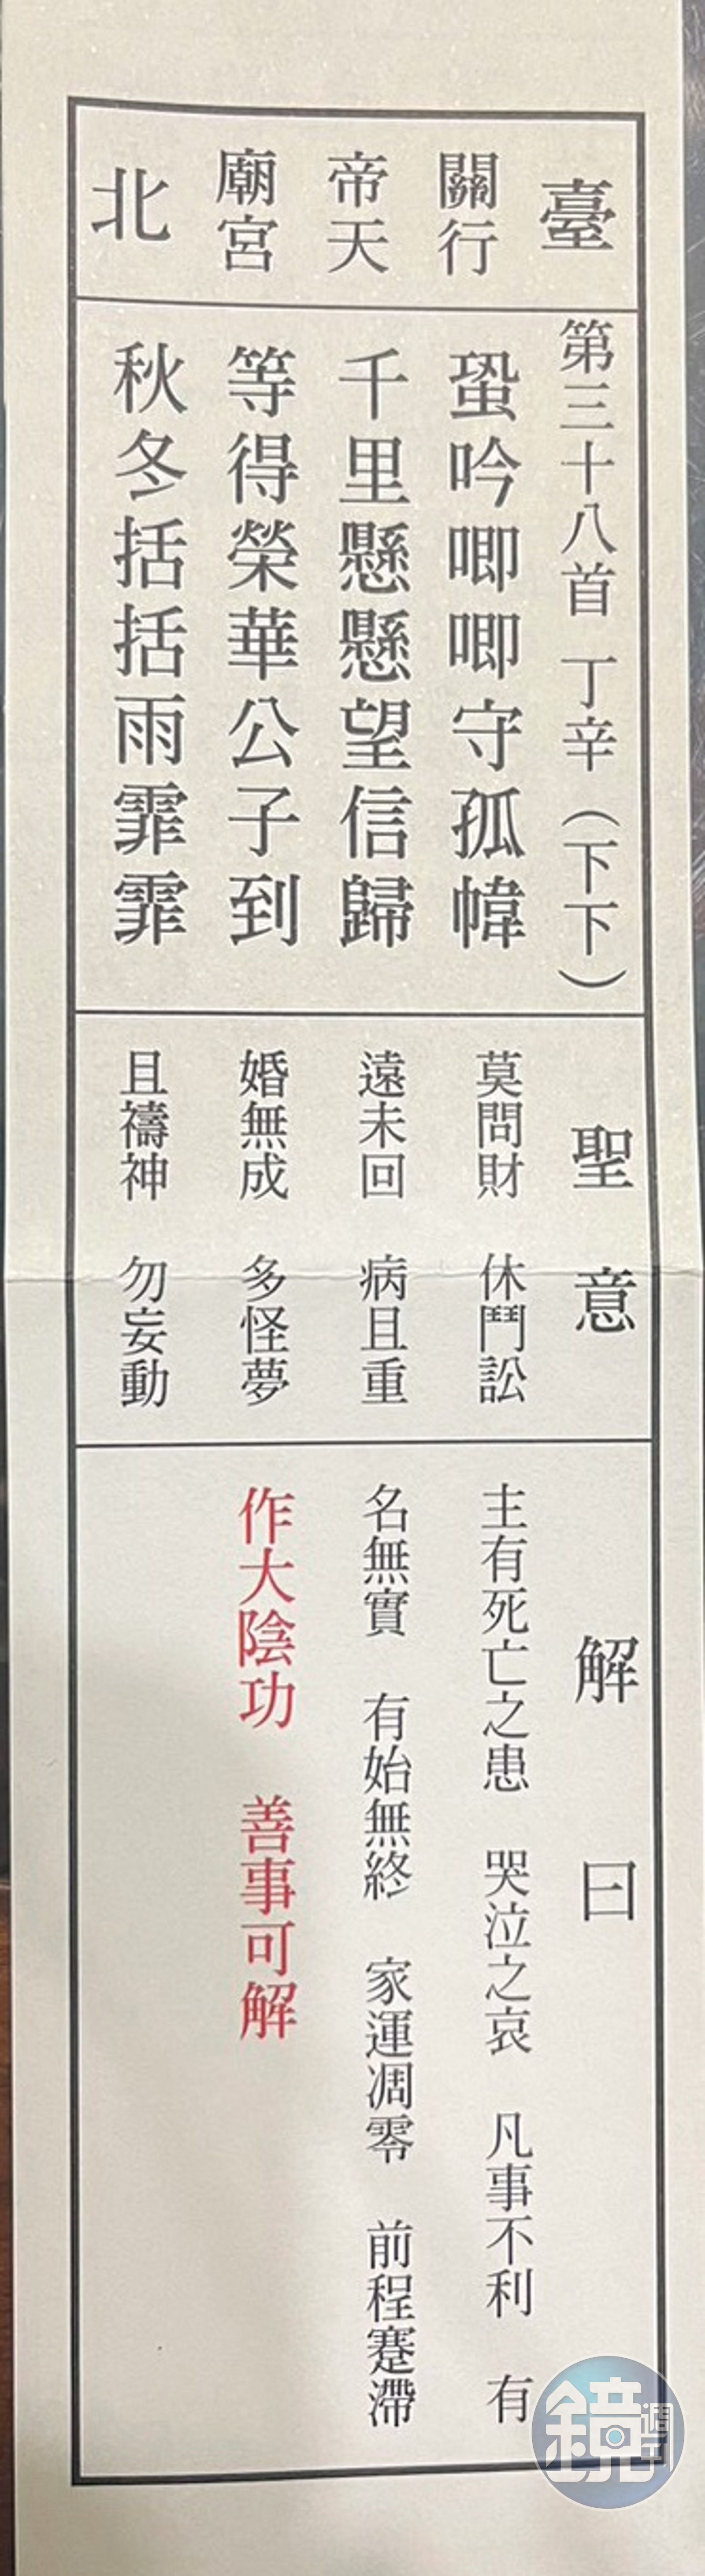 臺
關帝廟
行天宮
北
第三十八首 丁辛（下下）
蛩吟唧唧守孤幃
千里懸懸望信歸
等得榮華公子到
秋冬括括雨霏霏
聖意
莫問財 休鬥訟
遠未回 病且重
婚無成 多怪夢
且禱神 勿妄動
解曰
主有死亡之患 哭泣之哀 凡事不利 有
名無實 有始無終 家運凋零 前程蹇滯
作大陰功 善事可解
鏡週刊